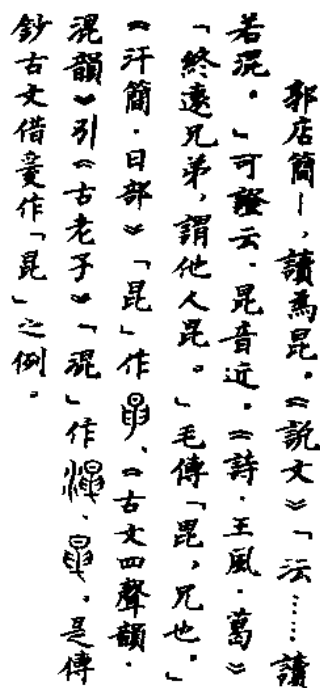 郭店簡丨，讀為昆。《說文》「沄……讀
若混。」可證云、昆音近。《詩·王風·葛》
「終遠兄弟，謂他人昆。」毛傳「昆，兄也。」
《汗簡·日部》「昆」作、《古文四聲韻·
混韻》引《古老子》「混」作、。是傳
鈔古文借作「昆」之例。